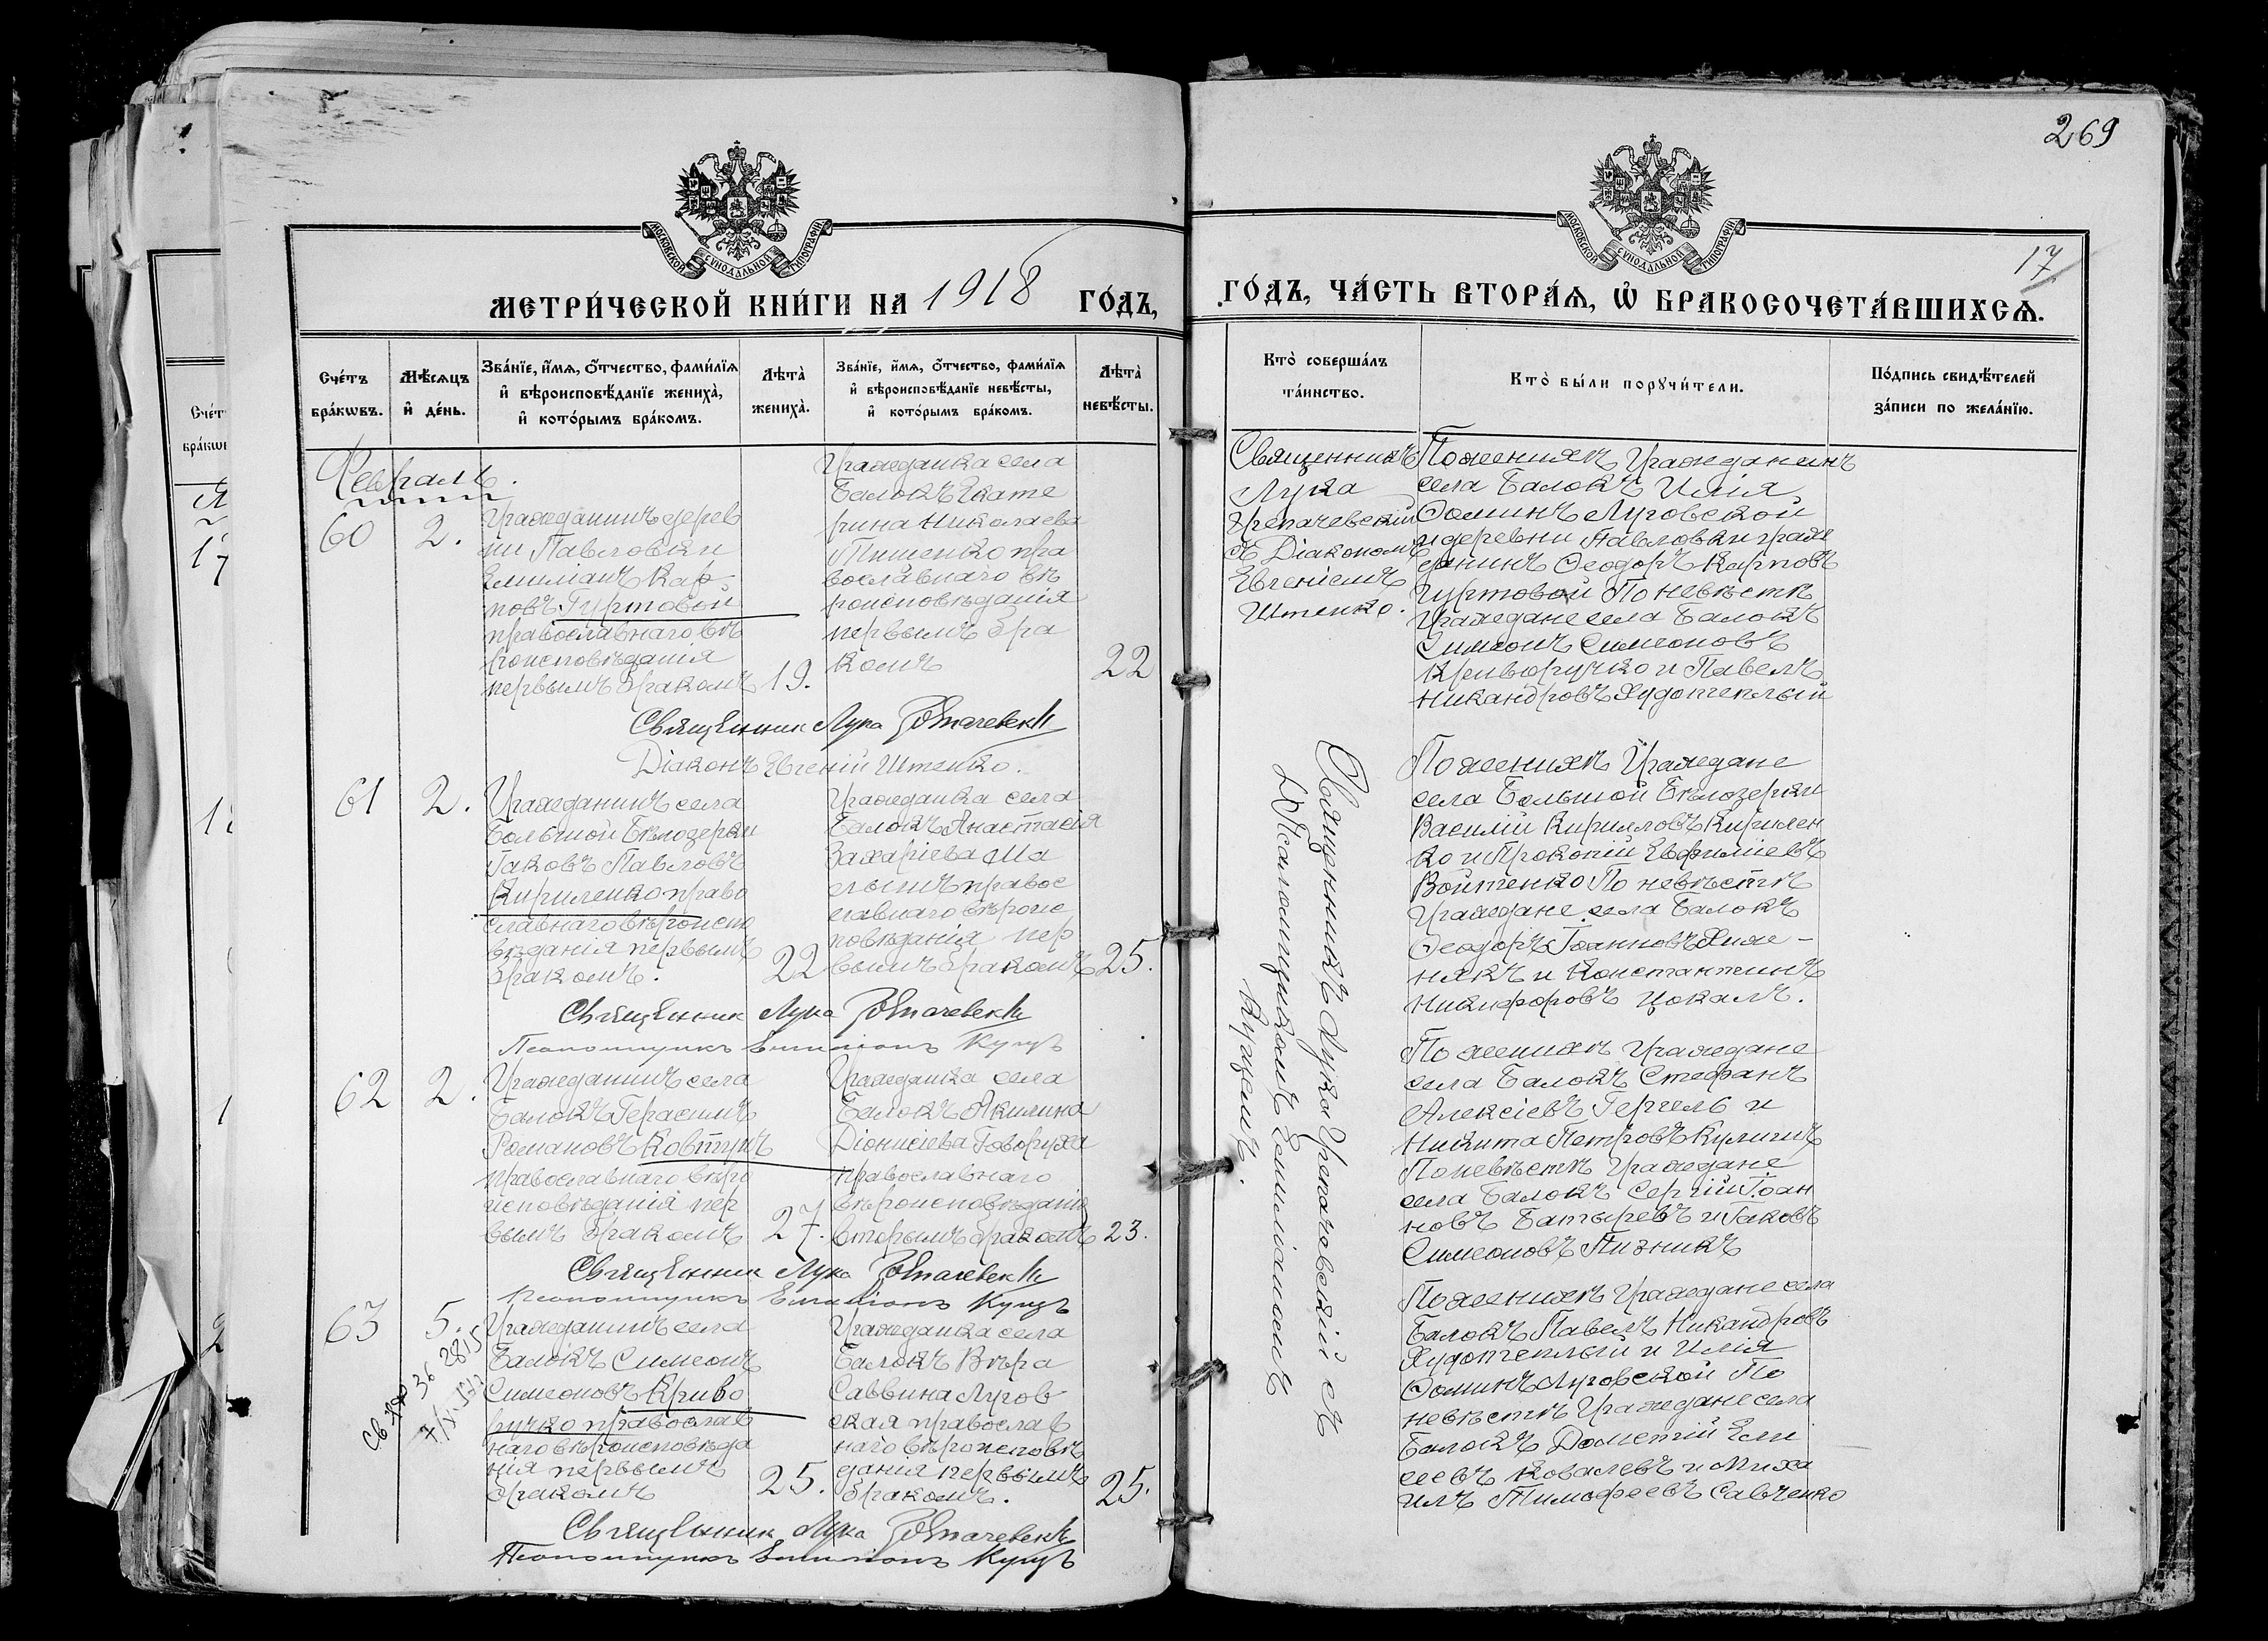 269
МОСКОВСКОЙ СУНОДАЛЬНОЙ ТИПОГРАФІИ
МОСКОВСКОЙ СУНОДАЛЬНОЙ ТИПОГРАФІИ
17
МЕТРИ́ЧЕСКОЙ КНИ́ГИ НА 1918 ГО́ДЪ,
ГО́ДЪ, ЧА́СТЬ ВТОРА́Ѧ, Ѡ҆ БРАКОСОЧЕТА́ВШИХСѦ.
Сче́тъ
бра́кѡвъ.
Мѣ́сѧцъ
и҆ де́нь.
Зва́нїе, и҆́мѧ, о҆́тчество, фами́лїѧ
и҆ вѣроисповѣ́данїе жениха̀,
и҆ кото́рымъ бра́комъ.
Лѣта̀
жениха̀.
Зва́нїе, и҆́мѧ, о҆́тчество, фами́лїѧ
и҆ вѣроисповѣ́данїе невѣ́сты,
и҆ кото́рымъ бра́комъ.
Лѣта̀
невѣ́сты.
Кто̀ соверша́лъ
та́инство.
Кто̀ бы́ли порꙋчи́тели.
По́дпись свидѣ́телей
за́писи по жела́нїю.
Февраль.
60
2.
Гражданинъ дерев
ни Павловки
Емиліанъ Кар-
повъ Гуртовой
православнаго вѣ
роисповѣданія
первымъ бракомъ
19.
Гражданка села
Балокъ Екате
рина Николаева
Тищенко пра
вославнаго вѣ
роисповѣданія
первымъ бра
комъ
22
Священникъ
Лука
съ Діакономъ
Евгеніемъ
Штенко.
По женихѣ Гражданинъ
села Балокъ Илія
Ѳоминъ Луговской
и деревни Павловки граж
данинъ Ѳеодоръ Карповъ
Гуртовой По невѣстѣ
Граждане села Балокъ
Симеонъ Симеоновъ
Криворучко и Павелъ
Никандровъ Худотеплый
Священник Лука
Діаконъ Евгеній Штенко.
61
2.
Гражданинъ села
Большой Бѣлозерки
Іаковъ Павловъ
Кириленко право
славнаго вѣроиспо
вѣданія первымъ
бракомъ.
22
Гражданка села
Балокъ Анастасія
Захаріева Ма
лышъ правос
лавнаго вѣроис
повѣданія пер
вымъ бракомъ
25.
Священникъ Лука с
Псаломщикомъ Емиліаномъ
Куцемъ.
По женихѣ Граждане
села Большой Бѣлозерки
Василій Кирилловъ Кирилен
ко и Прокопій Евфиміевъ
Войтенко По невѣстѣ
Граждане села Балокъ
Ѳеодоръ Іоанновъ Хиж-
някъ и Константинъ
Никифоровъ Цокалъ.
Священник Лука
Псаломщикъ Емилианъ Куцъ
62
2.
Гражданинъ села
Балокъ Герасимъ
Романовъ Ковтунъ
православнаго вѣро
исповѣданія пер
вымъ бракомъ
27.
Гражданка села
Балокъ Акилина
Діонисіева Говоруха
православнаго
вѣроисповѣданія
вторымъ бракомъ
23.
По женихѣ Граждане
села Балокъ Стефанъ
Алексіевъ Гергель и
Никита Петровъ Кулишъ
По невѣстѣ Граждане
села Балокъ Сергій Іоан
новъ Батыревъ и Іаковъ
Симеоновъ Пизникъ
Священник Лука
Псаломщикъ Емилианъ Куцъ
63
5.
Гражданинъ села
Балокъ Симеонъ
Симеоновъ Криво
ручко православ
наго вѣроисповѣда
нія первымъ
бракомъ
25.
Гражданка села
Балокъ Вѣра
Саввина Лугов
ская православ
наго вѣроисповѣ
данія первымъ
бракомъ.
25.
По женихѣ Граждане села
Балокъ Павелъ Никандровъ
Худотеплый и Илія
Ѳоминъ Луговской По
невѣстѣ Граждане села
Балокъ Дометій Ели
сеевъ Ковалевъ и Миха
илъ Тимофеевъ Савченко
Священник Лука
Псаломщикъ Емилианъ Куцъ